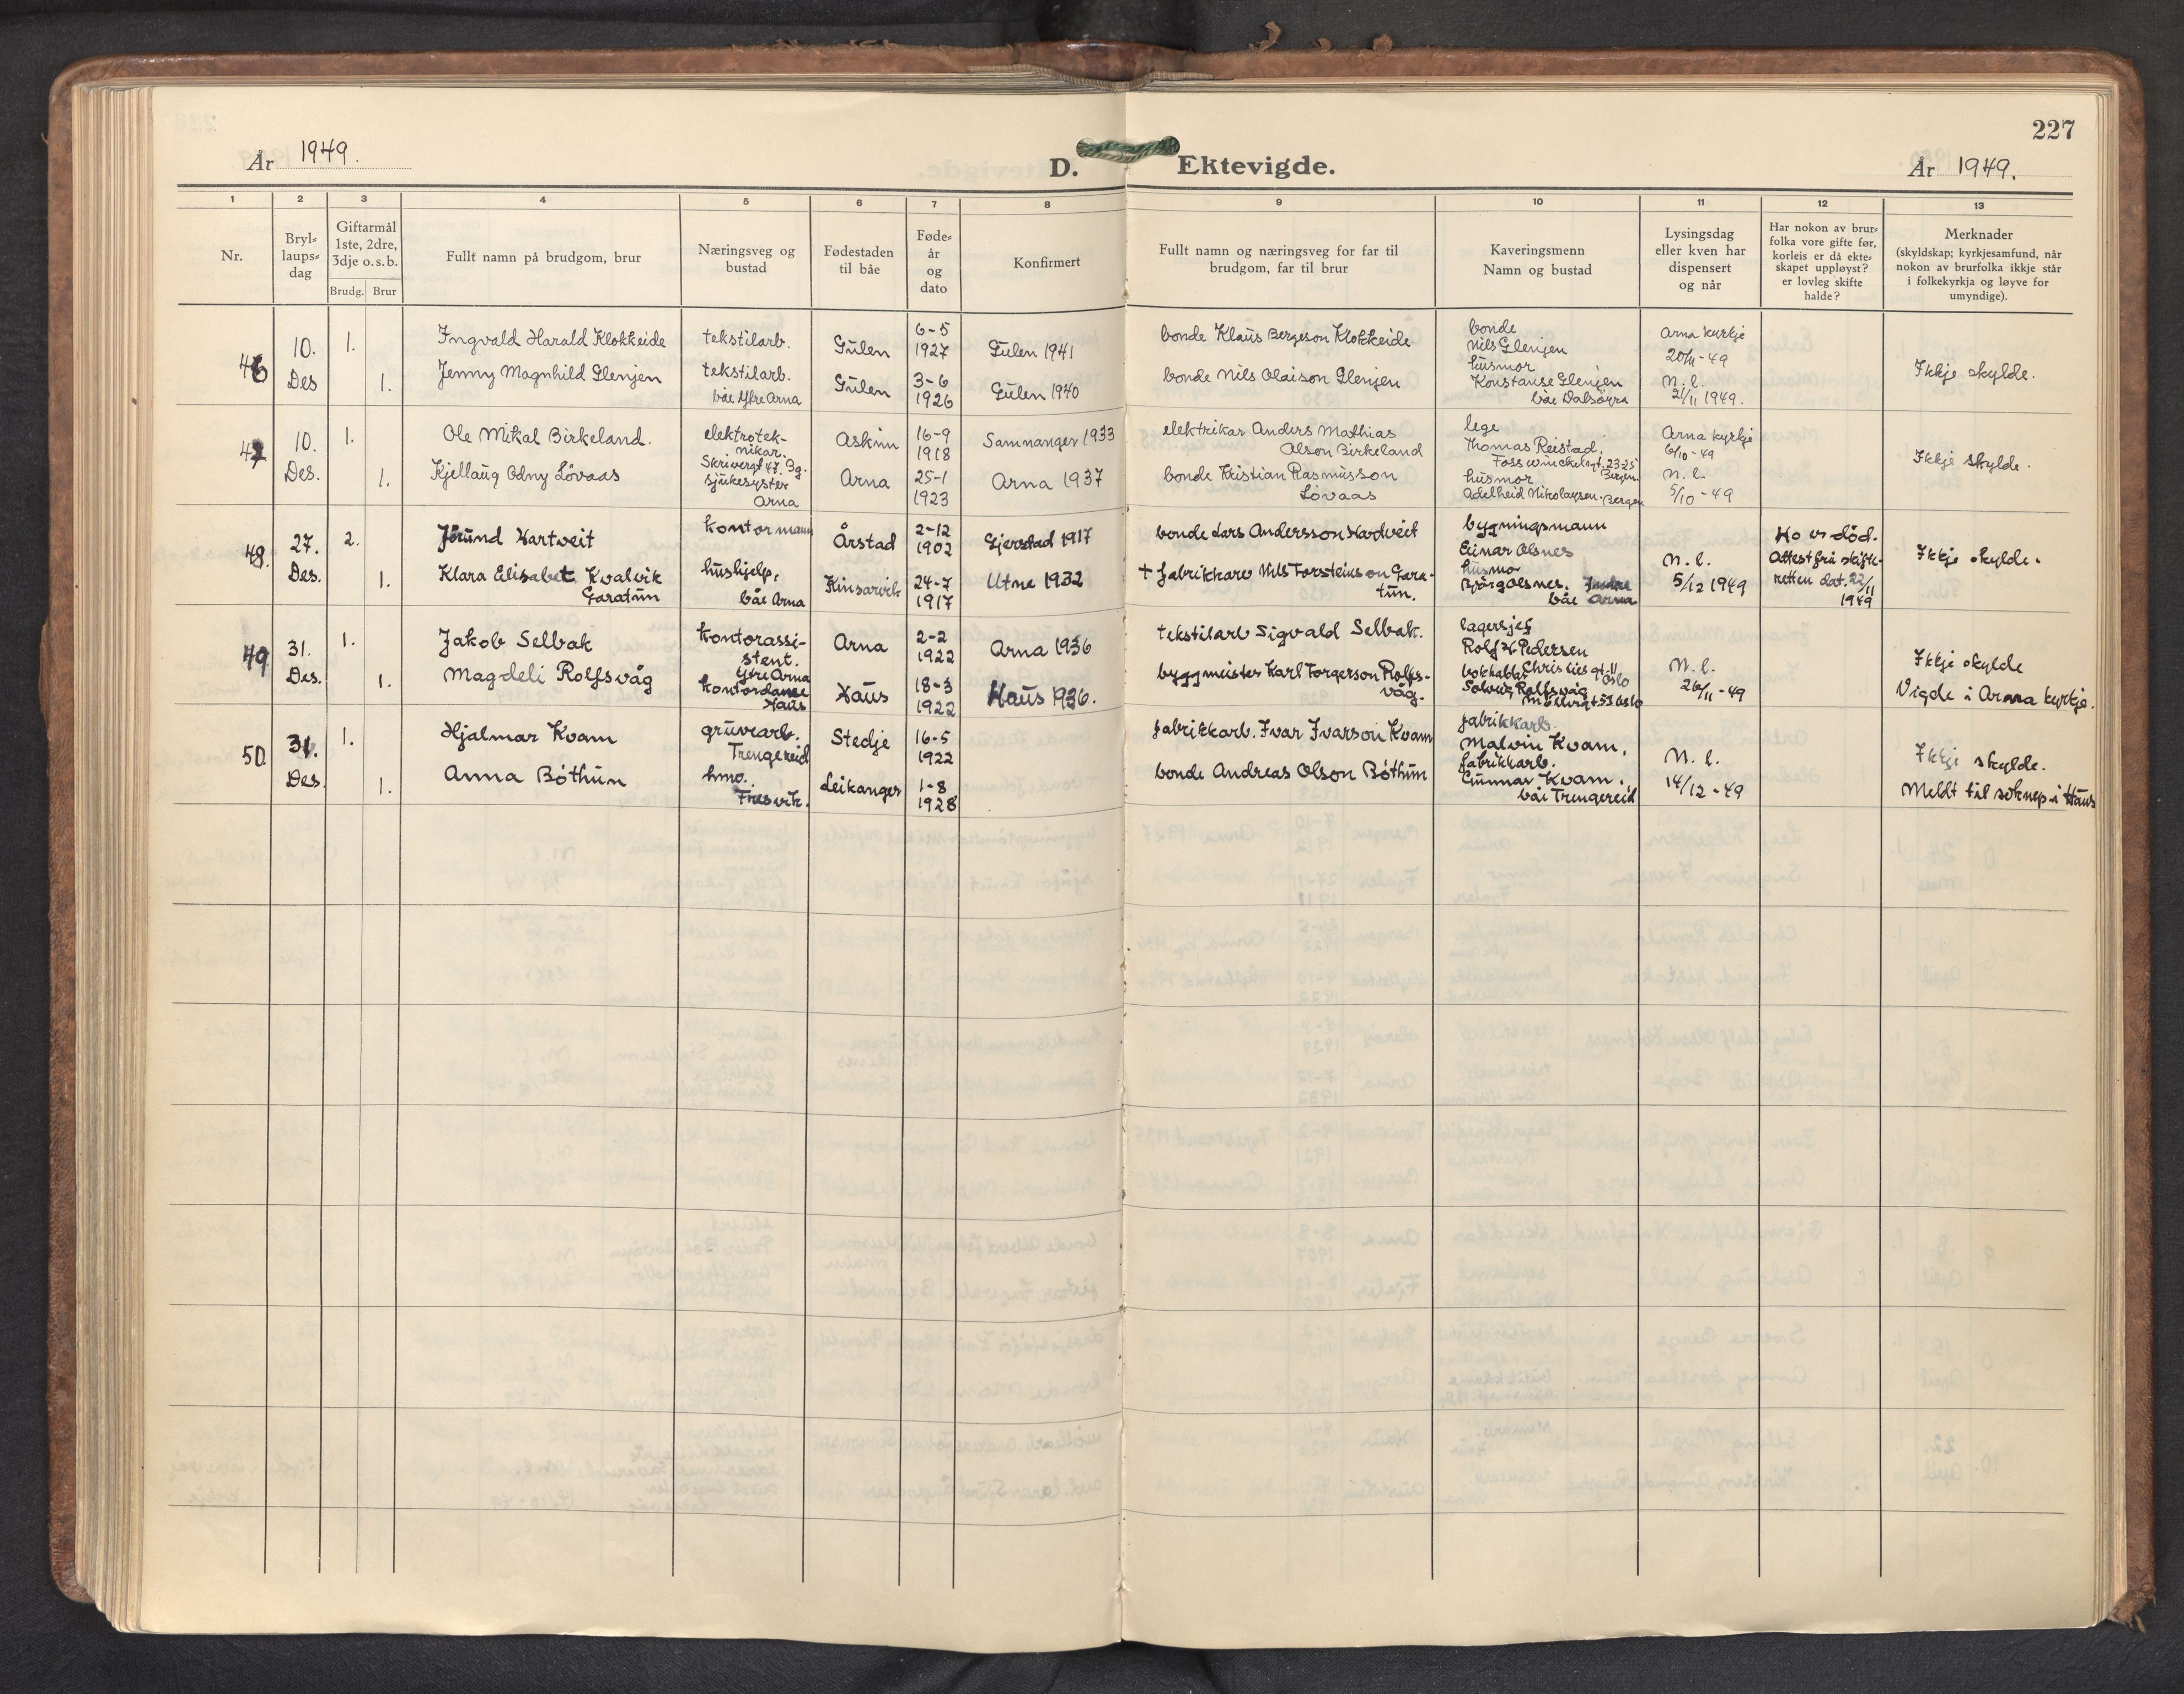 227
År 1949.
D. Ektevigde.
År 1949.
1 2 3 4 5 6 7 8 9 10 11 12 13
Nr.
Bryl-
laups-
dag
Giftarmål
1ste, 2dre,
3dje o.s.b.
Brudg. Brur
Fullt namn på brudgom, brur
Næringsveg og
bustad
Fødestaden
til båe
Føde-
år
og
dato
Konfirmert
Fullt namn og næringsveg for far til
brudgom, far til brur
Kaveringsmenn
Namn og bustad
Lysingsdag
eller kven har
dispensert
og når
Har nokon av brur-
folka vore gifte før,
korleis er då ekte-
skapet uppløyst?
er lovleg skifte
halde?
Merknader
(skyldskap; kyrkjesamfund, når
nokon av brurfolka ikkje står
i folkekyrkja og løyve for
umyndige).
46
10.
Des
1.
Ingvald Harald Klokkeide
tekstilarb.
Gulen
6-5
1927
Gulen 1941
bonde Klaus Bergeson Klokkeide
1.
Jenny Magnhild Glenjen
tekstilarb.
båe Ytre Arna
Gulen
3-6
1926
Gulen 1940
bonde Nils Olaison Glenjen
bonde
Nils Glenjen
husmor
Konstanse Glenjen
båe Dalsøyra
Arna kyrkje
20/11-49
n. l.
21/11 1949.
Ikkje skylde.
47
10.
Des.
1.
Ole Mikal Birkeland.
elektrotek-
nikar.
Skrivergt 47. Bg.
Askim
16-9
1918
Samnanger 1933
elektrikar Anders Mathias
Olson Birkeland
1.
Kjellaug Odny Lövaas
sjukesyster
Arna
Arna
25-1
1923
Arna 1937
bonde Kristian Rasmusson
Lövaas
lege
Thomas Reistad,
Foss winckelsgt. 23-25
Bergen
husmor
Adelheid Nikolaysen. Bergen
Arna kyrkje
6/10-49
n. l.
5/10-49
Ikkje skylde.
48.
27.
Des.
2.
Jörund Hartveit
kontormann
Årstad
2-12
1902
Gjerstad 1917
bonde Lars Andersson Hartveit
1.
Klara Elisabet Kvalvik
Garatun
hushjelp,
båe Arna
Kinsarvik
24-7
1917
Utne 1932
+ fabrikkarb Nils Torsteinson Gara-
tun.
bygningsmann
Einar Olsnes
husmo
Bjørg Olsnes. Indre
båe Arna
N. l.
5/12 1949
Ho er död.
Attest frå skifte-
retten dat. 22/11
1949
Ikkje skylde.
49
31.
Des.
1.
Jakob Selbak
kontorassi-
stent.
Ytre Arna
Arna
2-2
1922
Arna 1936
tekstilarb Sigvald Selbak.
1.
Magdeli Rolfsvåg
kontordame
Haus
Haus
18-3
1922
Haus 1936.
byggmeister Karl Torgerson Rolfs-
våg.
lagersjef
Rolf H Pedersen
Christies gt. 11
Oslo
Solveig Rolfsvåg
N. l.
26/11-49
Ikkje skylde
Vigde i Arna kyrkje.
50.
31.
Des.
1.
Hjalmar Kvam
gruvearb.
Trengereid
Stedje
16-5
1922
fabrikkarb. Ivar Ivarson Kvam
1.
Anna Böthun
hmo.
Fresvik.
Leikanger
1-8
1928
bonde Andreas Olson Böthun
fabrikkarb.
Malvin Kvam,
fabrikkarb.
Gunnar Kvam.
båe Trengereid
N. l.
14/12-49
Ikkje skylde.
Meldt til soknep. i Haus